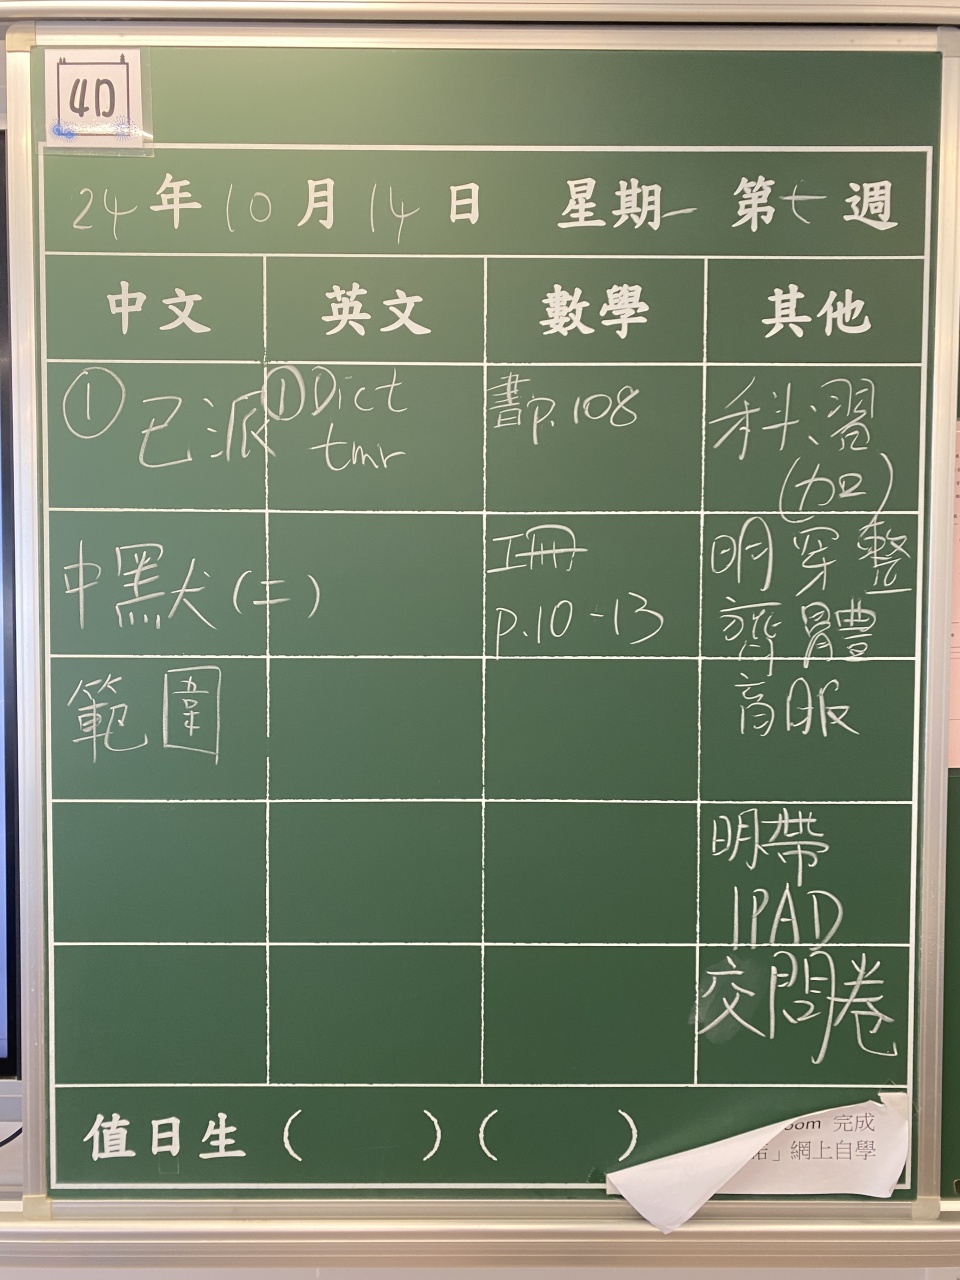 4D
24年10月14日 星期一 第七週
中文 英文 數學 其他
① 已派
中黑犬(二)
範圍
① Dict
tmr
書p.108
工冊
p.10-13
科習
(加)
明穿整
齊體
育服
明帶
IPAD
交問卷
值日生 ( ) ( )
oom 完成
」網上自學